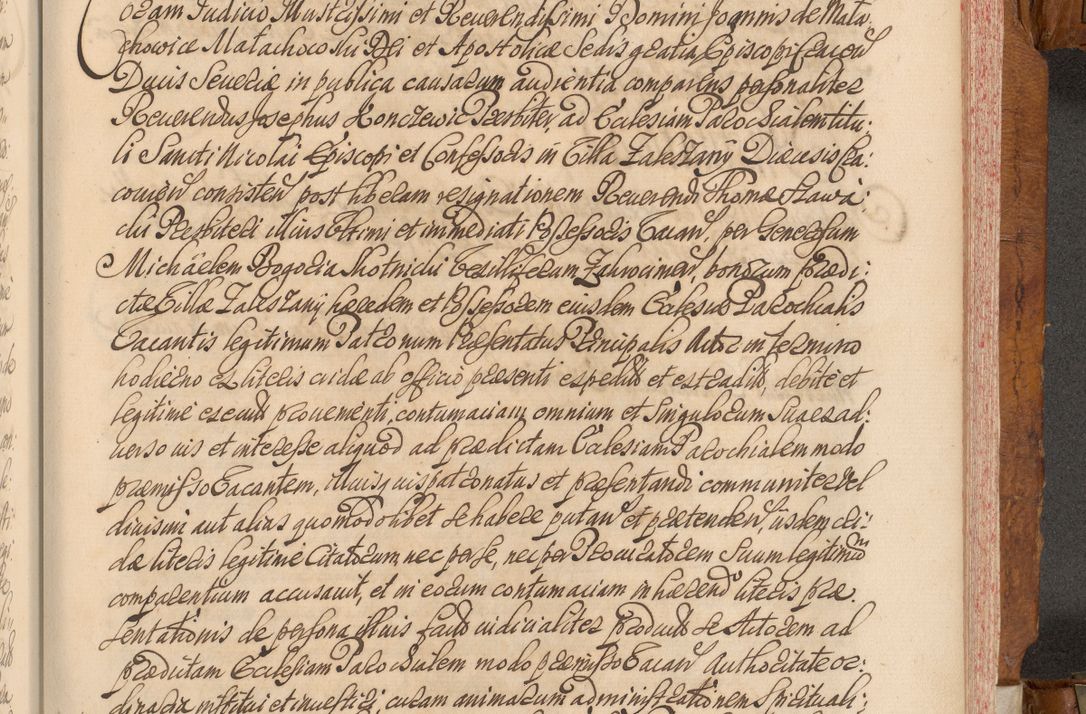 Coram Judicio Illustrissimi et Reverendissimi Domini Joannis de Mala:
chowice Małachowski Dei et Apostolicæ Sedis gratia Episcopi Cracovien
Ducis Severiæ in publica causarum audientia comparens personaliter
Reverendus Josephus Konczewic Præsbiter, ad Ecclesiam Parochialem titu:
li Sancti Nicolai Episcopi et Confessoris in Villa Zaleszany Diæcesis Cra:
covien consisten post liberam resignationem Reverendi Thomæ Sławi
cki Præsbiteri illius Ultimi et immediati Possessoris Vacan, per Generosum
Michäelem Bogoria Skotnicki Vexilliferum Zakrocimen, bonorum prædi:
ctæ Villæ Zaleszany hæredem et Possessorem eiusdem Ecclesiæ Parochialis
Vacantis legitimum Patronum Præsentatus Principalis Actor in termino
hodierno ex literis cridæ ab officio præsenti expeditis et extraditis, debite et
legitime executis provenienti, contumaciam omnium et Singulorum Sua ex ad:
verso ius et interesse aliquod ad prædictam Ecclesiam Parochialem modo
præmisso Vacantem, illiusque ius patronatus et præsentandi communiter vel
divisim aut alias quomodolibet se habere putan et prætenden, iisdem cri:
dæ literis legitime Citatorum, nec per se, nec per Procuratorem Suum legitimum
comparentium accusavit, et in eorum contumaciam inhærendo literis præ:
sentationis de persona illius factis iudicialiter productis se Actorem ad
prædictam Ecclesiam Parochialem modo præmisso Vacan Authoritate or:
dinaria institui et investiri, curam animarum administrationem Spirituali: